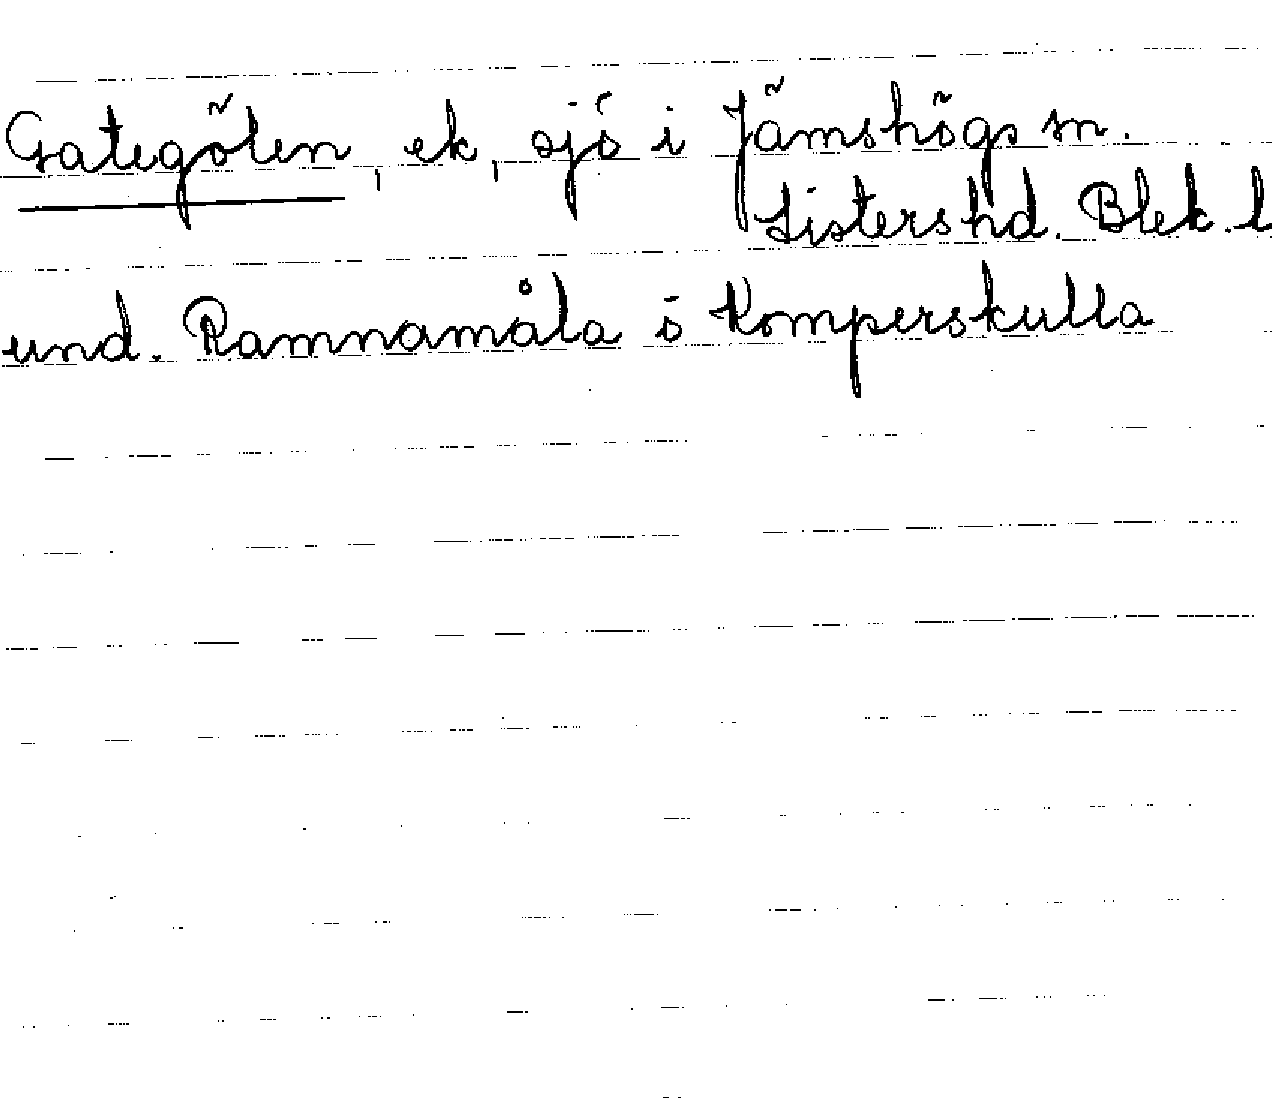 Gategölen, ek, sjö i Jämshögs sn.
Listers hd. Blek. l
und. Ramnamåla o Komperskulla